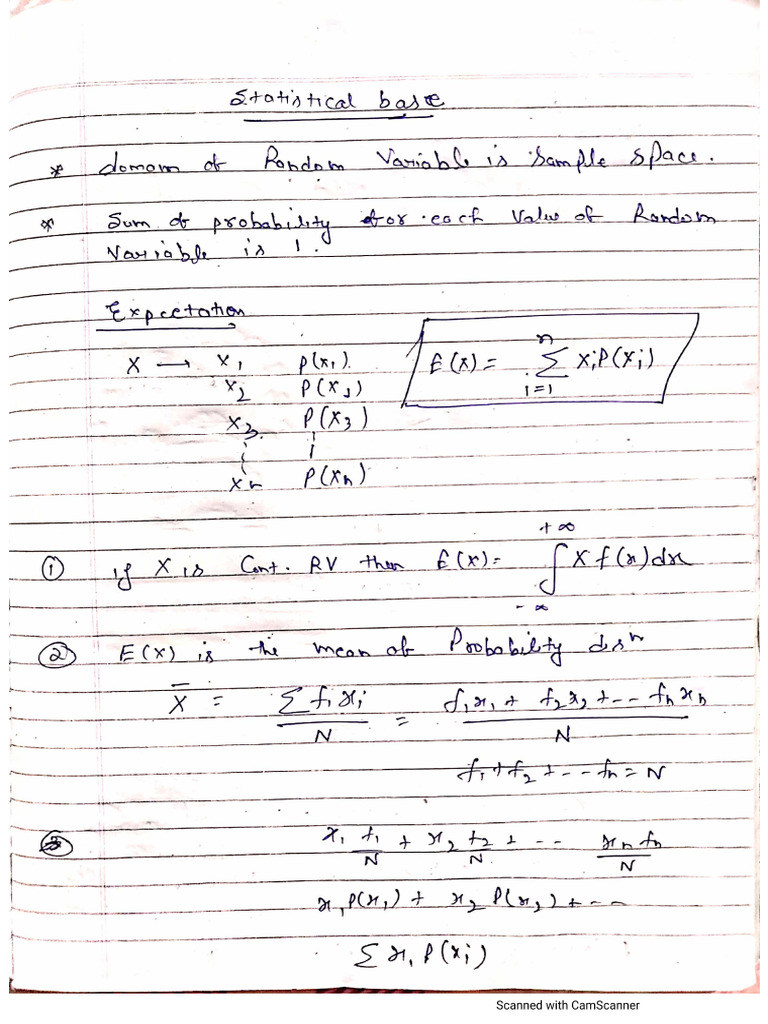 Statistical base
* domain of Random Variable is Sample Space.
* Sum of probability for each Value of Random
Variable is 1.
Expectation
X → x1 P(x1).
x2 P(x2)
x3. P(x3)
⋮ ⋮
xn P(xn)
E(X) = n Σ i=1 XiP(Xi)
① if X is Cont. RV then E(x)= +∞ ∫ -∞ X f(x)dx
② E(X) is the mean of Probability disn
X̄ = Σfixi / N = f1x1 + f2x2 + -- fnxn / N
f1+f2+--fn=N
③ x1 f1/N + x2 f2/N + -- xn fn/N
x1P(x1) + x2 P(x2) + ---
Σ xi P(xi)
Scanned with CamScanner